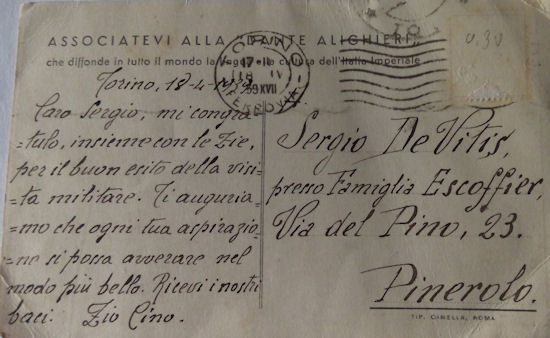 ASSOCIATEVI ALLA "DANTE ALIGHIERI"
che diffonde in tutto il mondo la e la cultura dell'Italia Imperiale
Torino, 18-4-
Caro Sergio, mi congra
=tulo, insieme con le Zie,
per il buon esito della visi=
=ta militare. Ti auguria=
=mo che ogni tua aspirazio=
=ne si possa avverare nel
modo più bello. Ricevi i nostri
baci. Zio Cino.
TORINO
17
18 IV
39 XVII
FERROVIA
0.30
Sergio De Vitis,
presso Famiglia Escoffier,
Via del Pino, 23.
Pinerolo.
TIP. CANELLA, ROMA